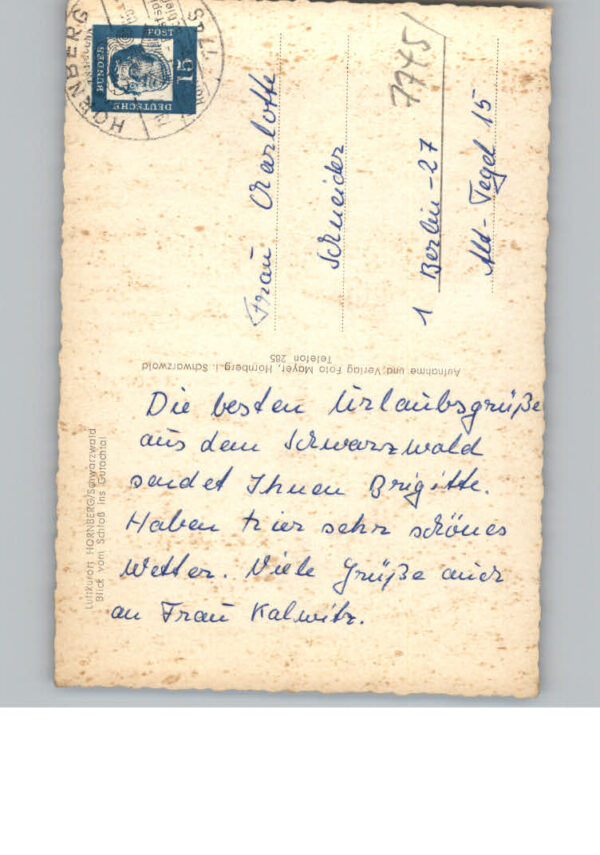 Die besten Urlaubsgrüße
aus dem Schwarzwald
sendet Ihnen Brigitte.
Haben hier sehr schönes
Wetter. Viele Grüße auch
an Frau Kalwitz.
Frau Charlotte
Schneider
1 Berlin-27
Alt-Tegel 15
7745/
Aufnahme und Verlag Foto Mayer, Hornberg i. Schwarzwald
Telefon 285
Luftkurort HORNBERG/Schwarzwald
Blick vom Schloß ins Gutachtal
DEUTSCHE
BUNDES
POST
15
HORNBERG